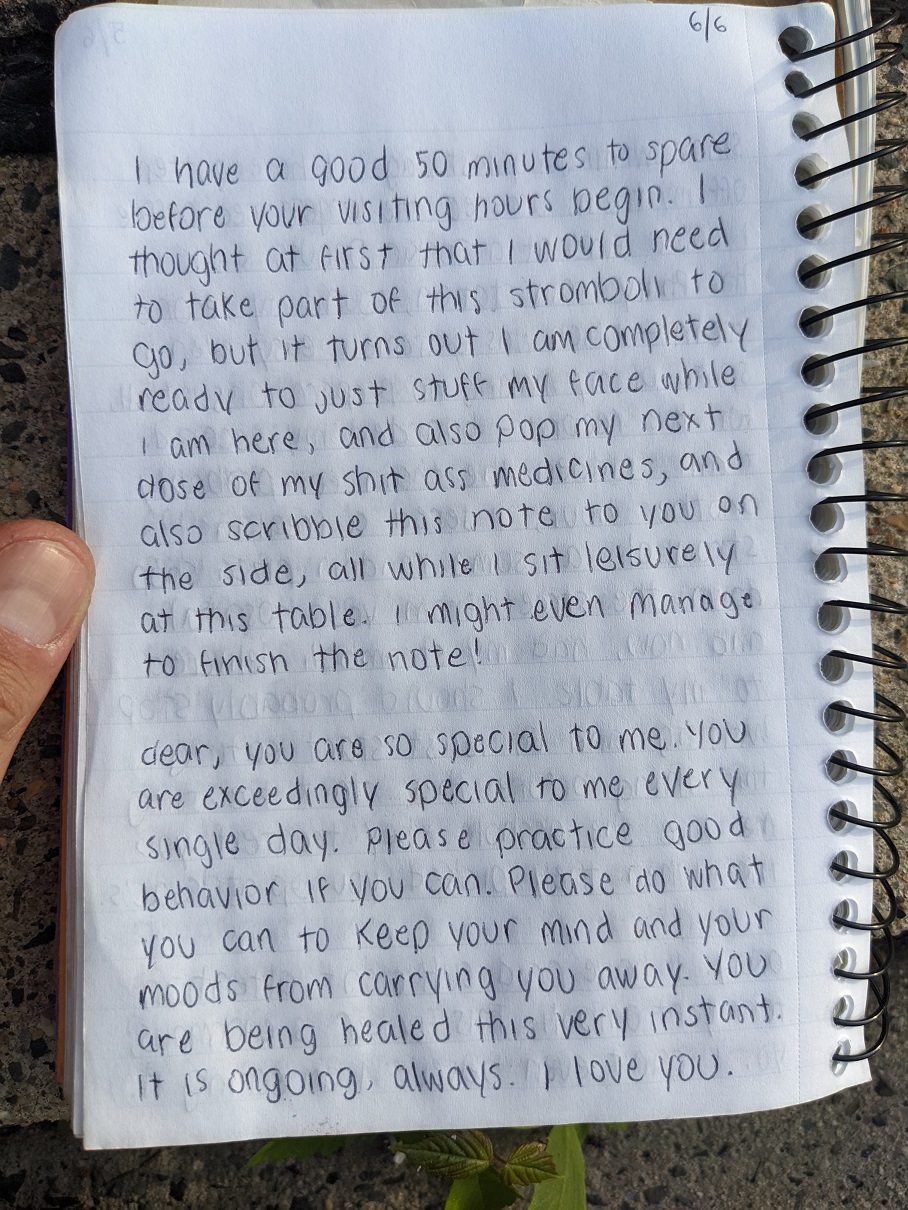 6/6
I have a good 50 minutes to spare
before your visiting hours begin. I
thought at first that I would need
to take part of this stromboli to
go, but it turns out I am completely
ready to just stuff my face while
I am here, and also pop my next
dose of my shit ass medicines, and
also scribble this note to you on
the side, all while I sit leisurely
at this table. I might even manage
to finish the note!
dear, you are so special to me. you
are exceedingly special to me every
single day. Please practice good
behavior if you can. Please do what
you can to keep your mind and your
moods from carrying you away. You
are being healed this very instant.
It is ongoing, always. I love you.